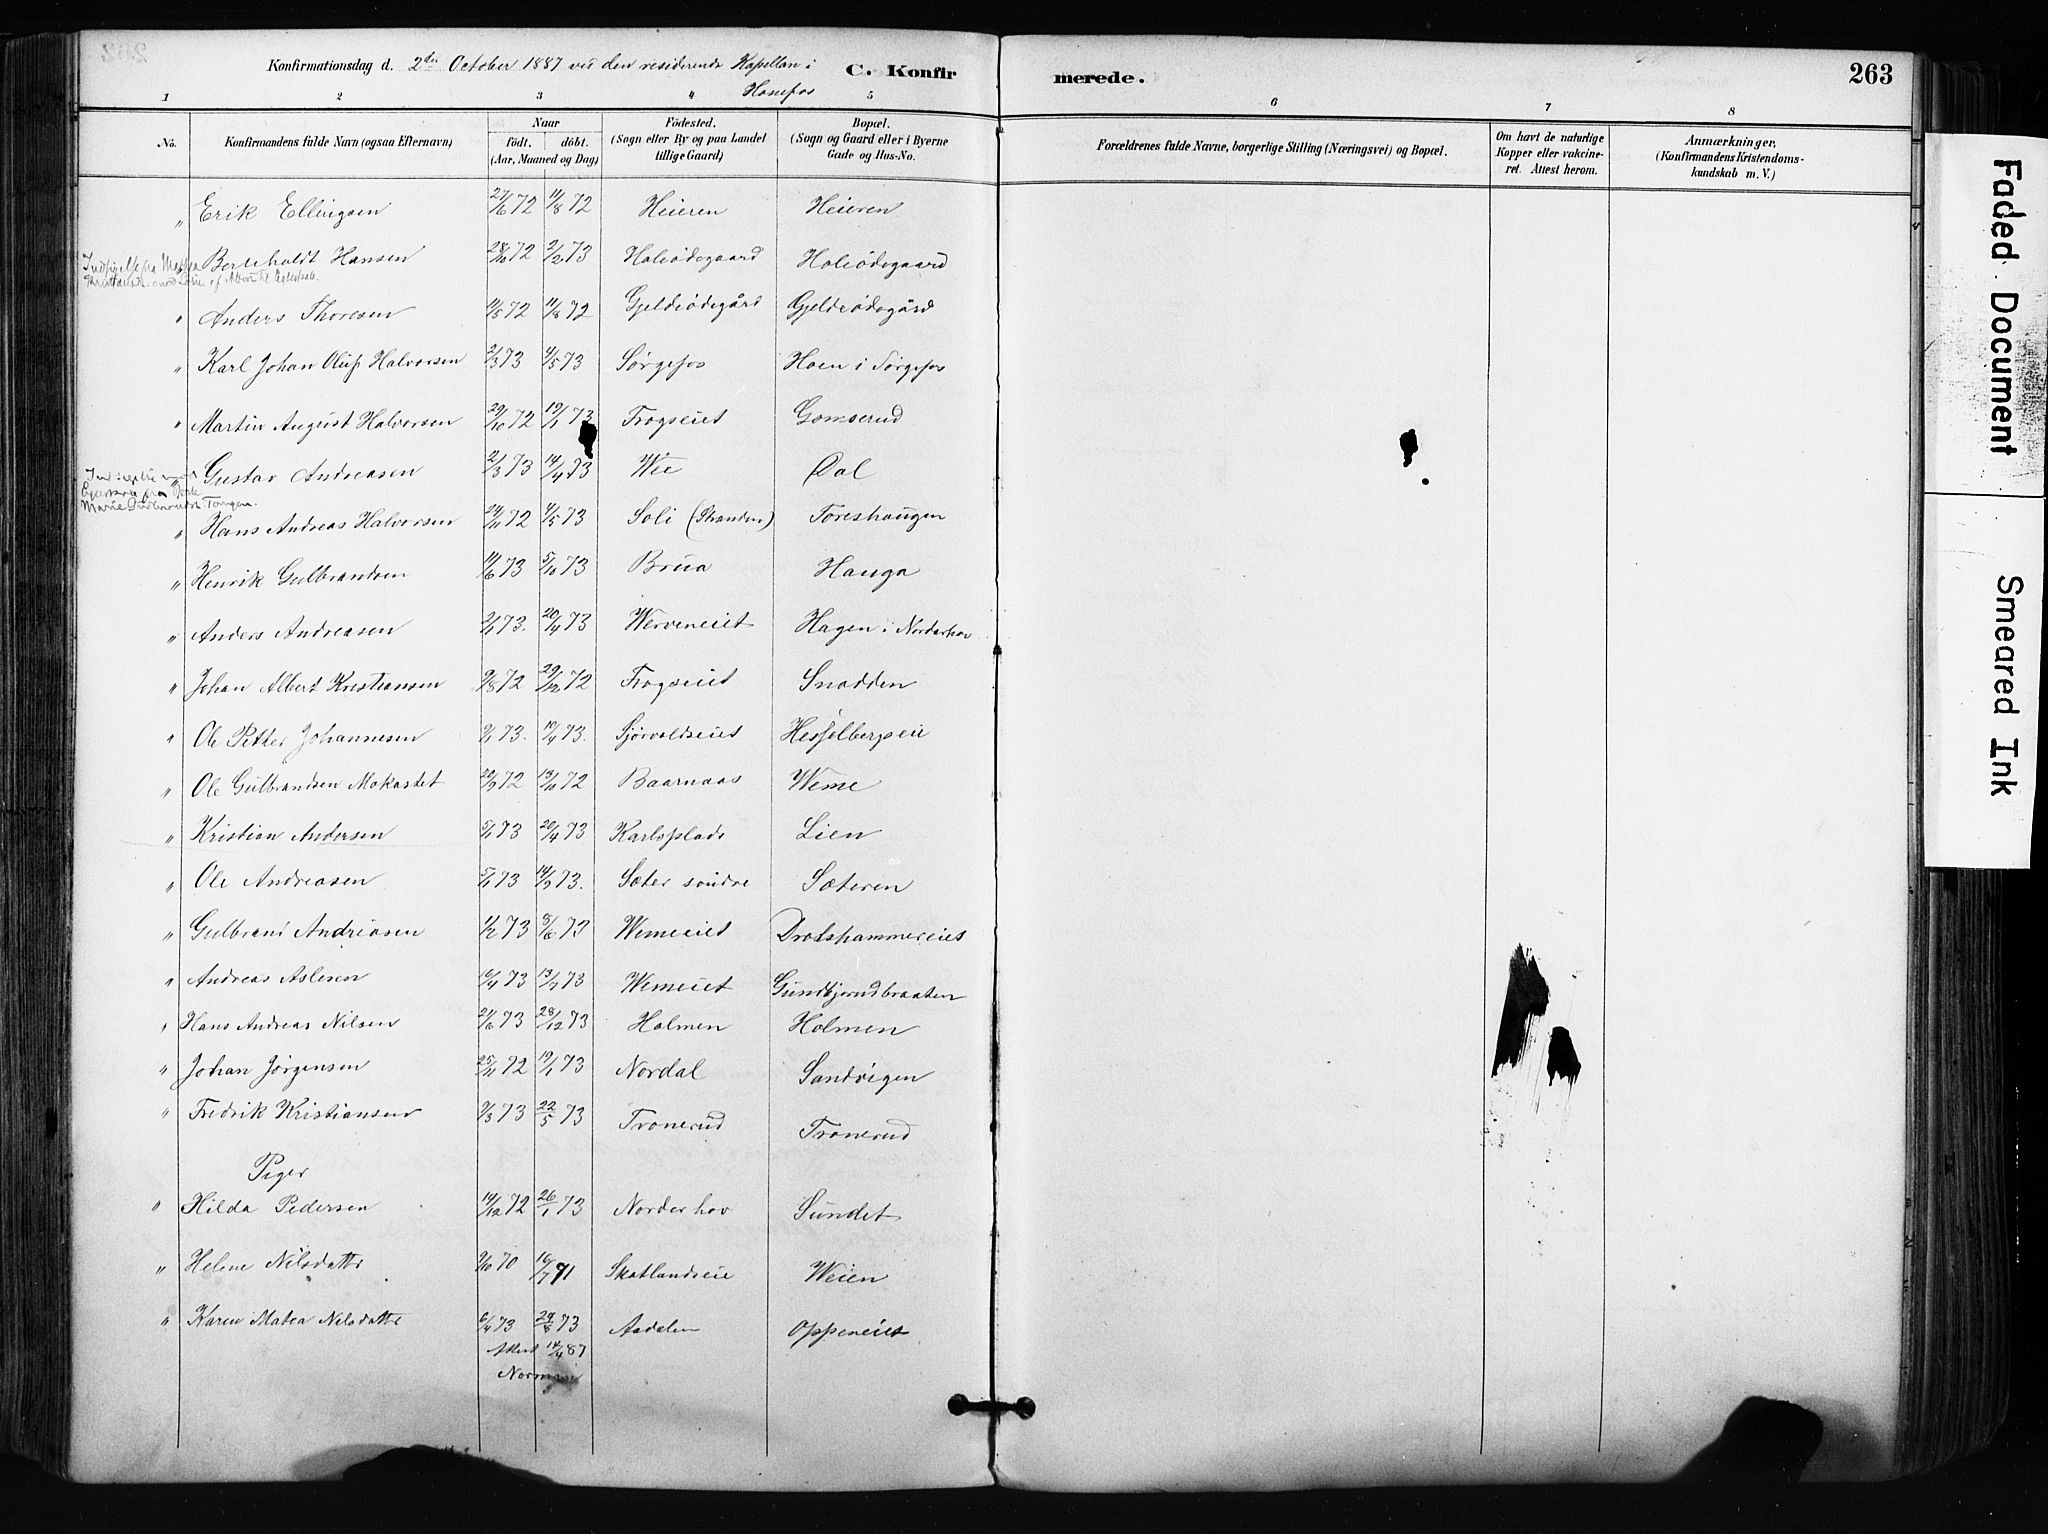 263
Konfirmationsdag d. 2den October 1887 ved den residerende Kapellan i Hønefos
C. Konfirmerede.
1 2 3 4 5 6 7 8
No. Konfirmandens fulde Navn (ogsaa Efternavn) Naar födt. döbt. (Aar, Maaned og Dag) Födested. (Sogn eller By og paa Landet tillige Gaard) Bopæl. (Sogn og Gaard eller i Byerne Gade og Hus-No.
Forældrenes fulde Navne, borgerlige Stilling (Næringsvei) og Bopæl. Om havt de naturlige Kopper eller vakcineret. Attest herom. Anmærkninger, (Konfirmandens Kristendomskundskab m. V.)
" Erik Ellingsen 27/6 72 11/8 72 Heieren Heieren
Bertholdt Hansen 28/10 72 2/2 73 Holeødegaard Holeødegaard
" Anders Thoresen 14/5 72 11/8 72 Gjeldeødegård Gjeldeødegård
" Karl Johan Oluf Halvorsen 2/3 73 4/5 73 Sørgefos Hoen i Sørgefos
" Martin August Halvorsen 29/10 72 19/1 73 Frogseiet Gomserud
" Gustav Andreasen 2/3 73 14/4 73 Wie Dal
" Hans Andreas Halvorsen 24/11 72 4/5 73 Soli (Stranden) Toreshaugen
" Henrik Gulbrandsen 14/6 73 5/10 73 Brua Hauga
" Anders Andreasen 2/1 73. 20/4 73 Werveneiet Hagen i Norderhov
" Johan Albert Kristiansen 9/8 72 29/12 72 Frogseiet Snadden
" Ole Petter Johannesen 9/1 73. 19/4 73. Sjørvoldseiet Hesselbergseie
" Ole Gulbrandsen Mokastet 20/9 72 13/10 72 Baarnaas Weme
" Kristian Andersen 5/1 73 20/4 73 Karlsplads Lien
" Ole Andreasen 5/1 73 14/9 73. Sæter søndre Sæteren
" Gulbrand Andreasen 1/2 73 8/6 73 Wemeeiet Drolshammereiet
" Andreas Aslesen 16/4 73 13/7 73 Wemeiet Gundbjørudbraaten
" Hans Andreas Nilsen 21/6 73 28/12 73 Holmen Holmen
" Johan Jørgensen 25/11 72 19/1 73 Nordal Sandvigen
" Fredrik Kristiansen 9/3 73 22/5 73 Tronerud Tronerud
Piger
" Hilda Pedersen 14/12 72 26/1 73 Norderhov Sundet
" Helene Nilsdatter 9/10 70 16/7 71 Skotlandseie Weien
" Karen Matea Nilsdatter 6/4 73 24/8 73 Aadalen Oppeneiet
Attest 14/4 87
Faded Document
Smeared Ink